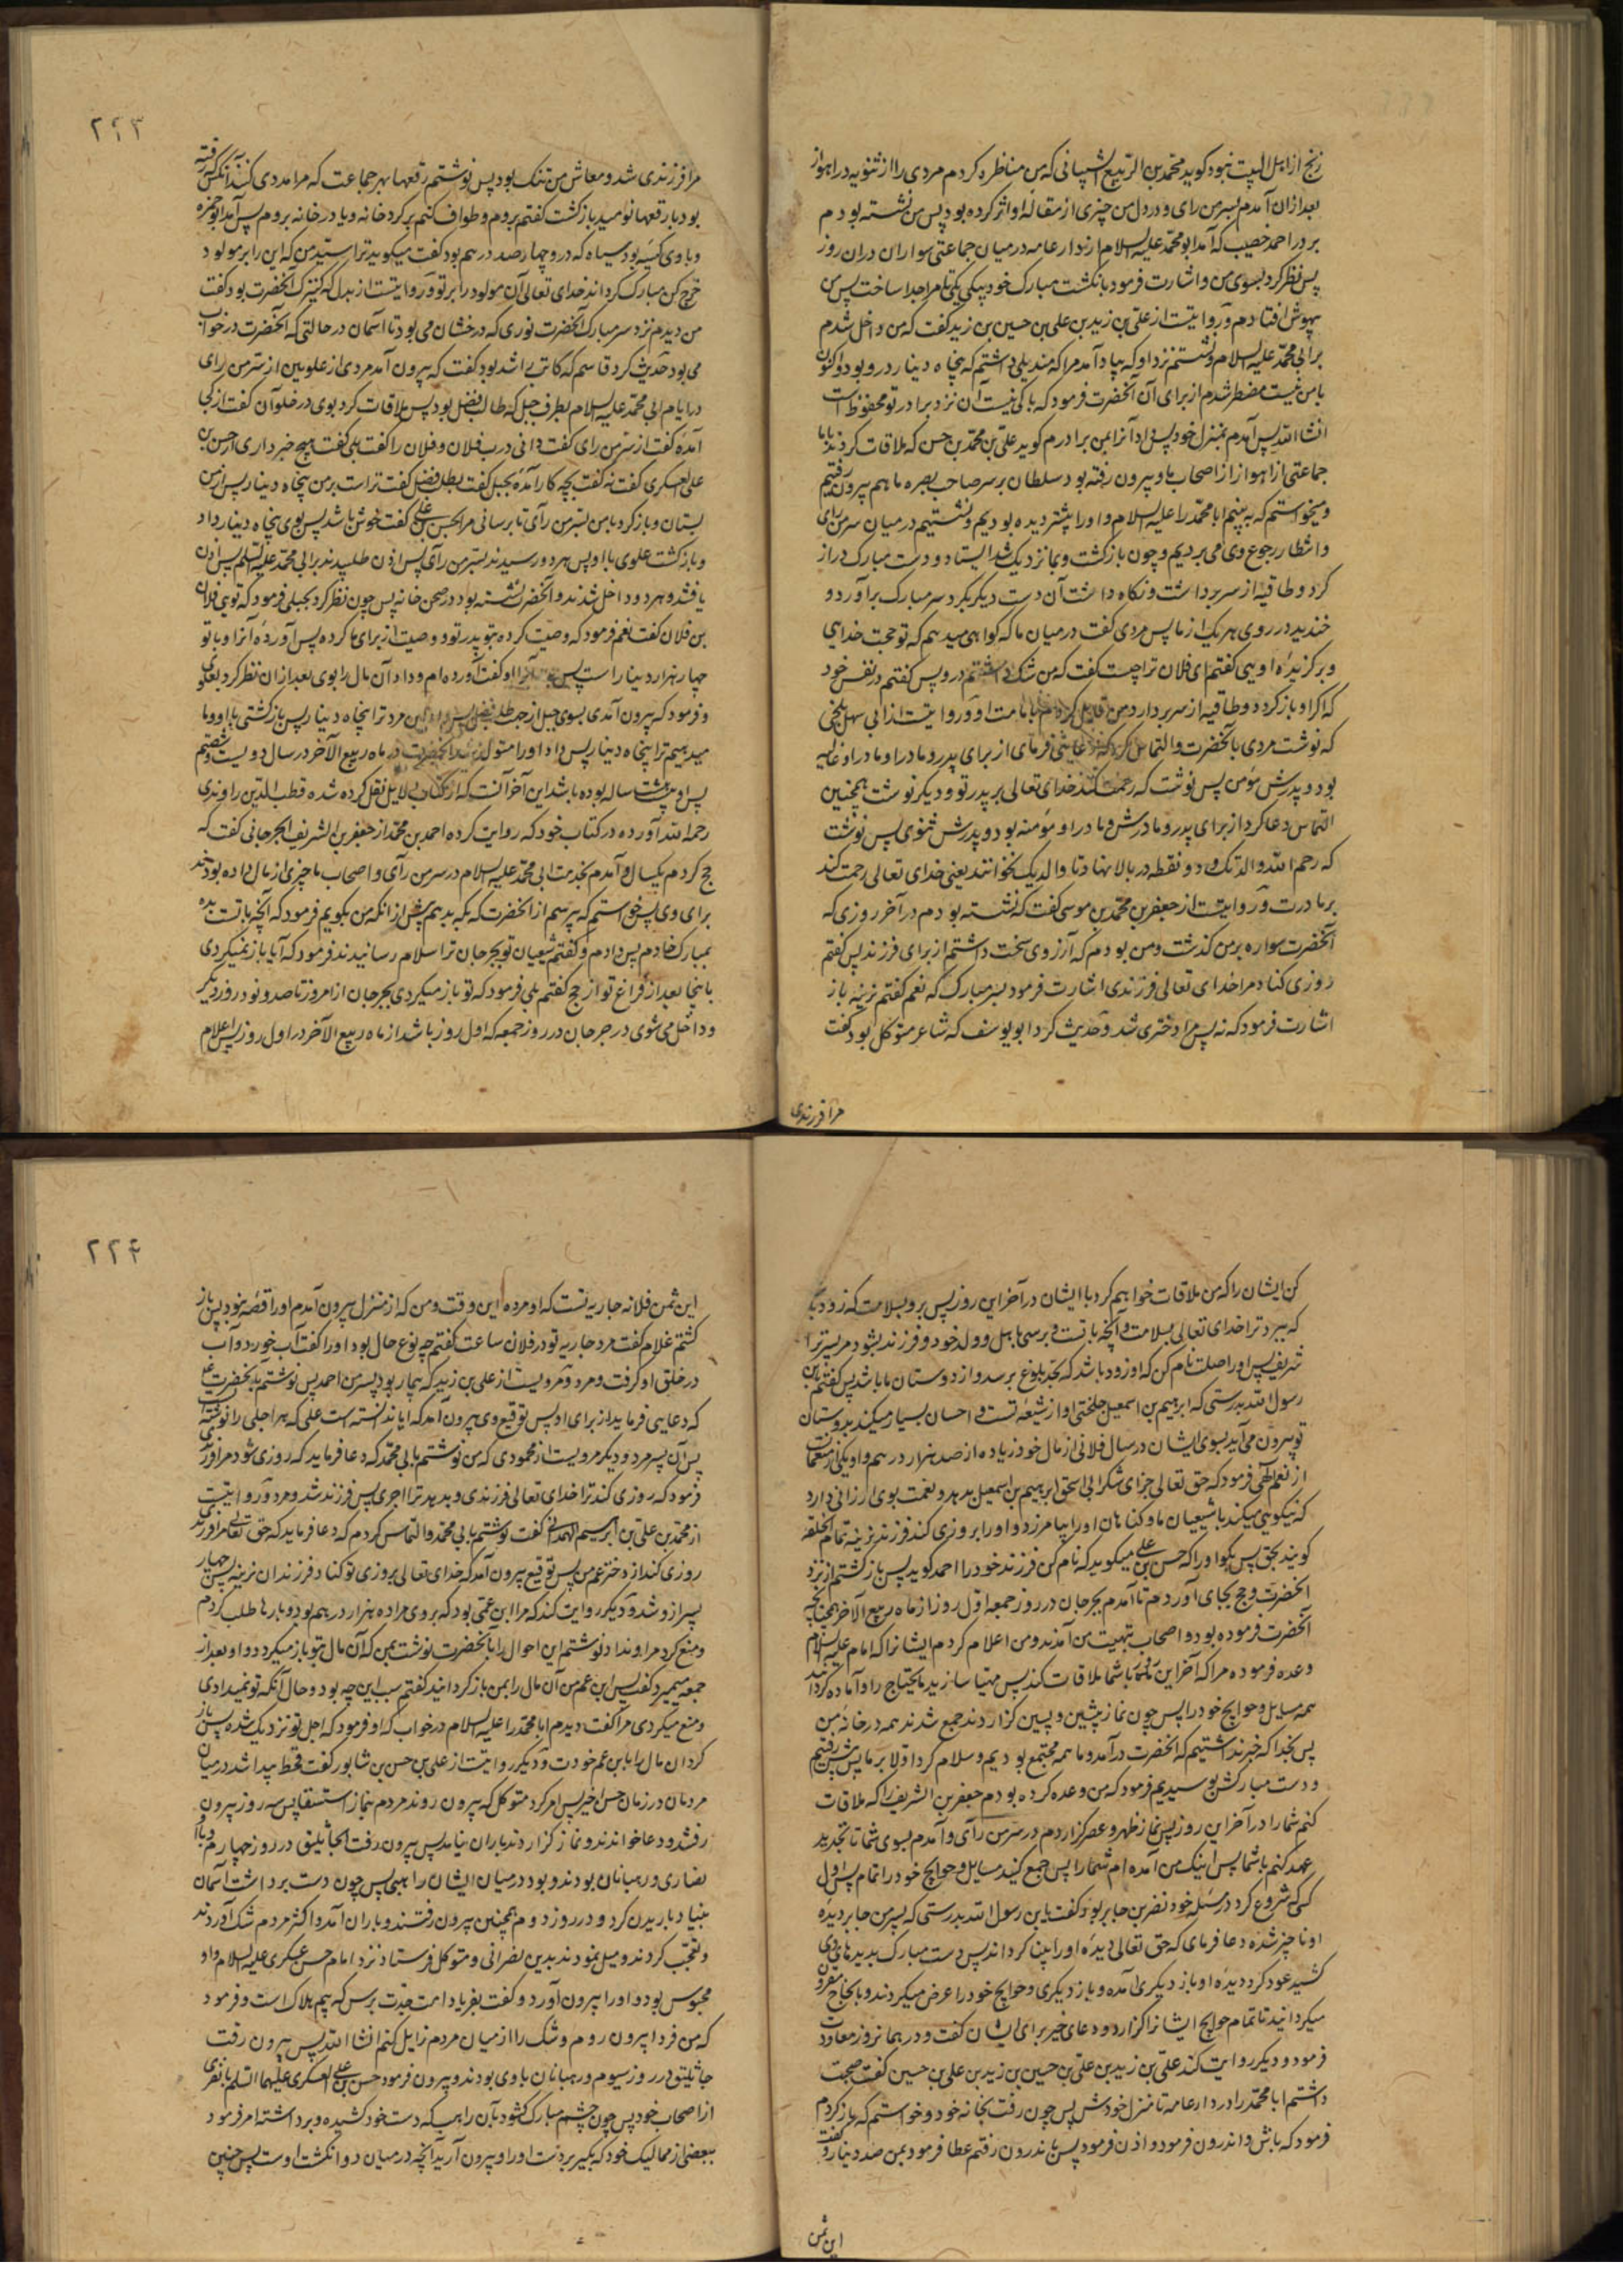 رنج از اهل البیت نبود گوید محمد بن الربیع الشیبانی که من مناظره کردم مردی را از ثنویه در اهواز
بعد از آن آمدم بسر من رای و در دل من چیزی از مقاله او اثر کرده بود پس من نشسته بودم
بر در احمد خصیب که آمد ابو محمد علیه السلام از دار عامه در میان جماعتی سواران در آن روز
پس نظر کرد بسوی من و اشارت فرمود بانگشت مبارک خود یکی یکتا مرا جدا ساخت پس من
بیهوش افتادم و روایتست از علی بن زید بن علی بن حسین بن زید گفت که من داخل شدم
بر ابی محمد علیه السلام و نشستم نزد او که بیاد آمد مرا که مندیلی داشتم که پنجاه دینار درو بود و اکنون
با من نیست مضطر شدم از برای آن آنحضرت فرمود که باکی نیست آن نزد برادر تو محفوظ است
انشا الله پس آمدم بمنزل خود پس داد آنرا بمن برادرم گوید علی بن محمد بن حسن که ملاقات کردند با ما
جماعتی از اهواز از اصحاب ما و بیرون رفته بود سلطان بر سر صاحب بصره ما هم بیرون رفتیم
و میخواستیم که به بینیم ابا محمد را علیه السلام و او را پیشتر دیده بودیم و نشستیم در میان سر من رای
و انتظار رجوع وی می بردیم و چون بازگشت و بما نزدیک شد ایستاد و دست مبارک دراز
کرد و طاقیه از سر برداشت و نگاه داشت آن دست دیگر بگرد سر مبارک برآورد و
خندید در روی هر یک از ما پس مردی گفت در میان ما که گواهی میدهم که تو حجت خدایی
و برگزیده اویی گفتم ای فلان تراچست گفت که من شک داشتم درو پس گفتم در نفس خود
که اگر او بازگردد و طاقیه از سر بردارد من قایل گردم بامامت او و روایتست از ابی سهل بلخی
که نوشت مردی بآنحضرت و التماس کرد که دعایی فرمای از برای پدر و مادر او مادر او غالیه
بود و پدرش مؤمن پس نوشت که رحمت کند خدای تعالی بر پدر تو و دیگر نوشت همچنین
التماس دعا کرد از برای پدر و مادرش و مادر او مؤمنه بود و پدرش ثنوی پس نوشت
که رحم الله والدتک و دو نقطه در بالا نهاد تا والدیک نخوانند یعنی خدای تعالی رحمت کند
بر مادرت و روایتست از جعفر بن محمد بن موسی گفت که نشسته بودم در آخر روزی که
آنحضرت سواره بر من گذشت و من بودم که آرزوی سخت داشتم از برای فرزند پس گفتم
روزی کناد مرا خدای تعالی فرزندی اشارت فرمود بسر مبارک که نعم گفتم نرینه باز
اشارت فرمود که نه پس مرا دختری شد و حدیث کرد ابو یوسف که شاعر متوکل بود گفت
مرا فرزندی
۲۲۳
مرا فرزندی شد و معاش من تنک بود پس نوشتم رقعها بهر جماعت که مرا مددی کنند آنکس که رفته
بود با رقعها نومید بازگشت گفتم بروم و طواف کنم بر گرد خانه و یا در خانه بروم پس آمد ابو حمزه
و با وی کیسه بود سیاه که درو چهار صد درهم بود گفت میگوید ترا سید من که این را بر مولود
خرج کن مبارک گرداند خدای تعالی آن مولود را بر تو و روایتست از بدل که کنیزک آنحضرت بود گفت
من دیدم نزد سر مبارک آنحضرت نوری که درخشان می بود تا آسمان در حالتی که آنحضرت در خواب
می بود حدیث کرد قاسم که کاتب راشد بود گفت که بیرون آمد مردی از علویین از سر من رای
در ایام ابی محمد علیه السلام بطرف جبل که طالب فضل بود پس ملاقات کرد بوی در حلوان گفت از کجا
آمدهٔ گفت از سر من رای گفت دانی درب فلان و فلان را گفت بلی گفت هیچ خبر داری از حسن بن
علی العسکری گفت نه گفت بچه کار آمدهٔ بجبل گفت بطلب فضل گفت تراست بر من پنجاه دینار پس از من
بستان و بازگرد با من بسر من رآی تا برسانی مرا بحسن بن علی گفت خوش باشد پس بوی پنجاه دینار داد
و بازگشت علوی با او پس هر دو رسیدند بسر من رآی پس اذن طلبیدند بر ابی محمد علیه السلم پس اذن
یافتند و هر دو داخل شدند و آنحضرت نشسته بود در صحن خانه پس چون نظر کرد بجبلی فرمود که تویی فلان
بن فلان گفت نعم فرمود که وصیت کرده بتو پدر تو و وصیت از برای ما کرده پس آورده آنرا و با تو
چهار هزار دینار است پس او گفت آورده ام و داد آن مال را بوی بعد از آن نظر کرد بعلوی
و فرمود که بیرون آمدی بسوی جبل از جهت طلب فضل پس داد این مرد ترا پنجاه دینار پس بازگشتی با او و ما
میدهیم ترا پنجاه دینار پس داد او را متولد شد آنحضرت در ماه ربیع الآخر در سال دویست و
پس او بیست و هشت ساله بوده باشد این آخر آنست که از کتاب دلایل نقل کرده شده قطب الدین راوندی
رحمه الله آورده در کتاب خود که روایت کرده احمد بن محمد از جعفر بن الشریف الجرجانی گفت که
حج کردم یکسال و آمدم بخدمت ابی محمد علیه السلام در سر من رآی و اصحاب ما چیزی از مال داده بودند
برای وی پس خواستم که پرسم از آنحضرت که بکه بدهم پیش از آنکه من بگویم فرمود که آنچه با تست بده
بمبارک خادم پس دادم و گفتم شیعیان تو بجرجان ترا سلام رسانیدند فرمود که آیا باز نمیگردی
بآنجا بعد از فراغ تو از حج گفتم بلی فرمود که تو باز میگردی بجرجان از امروز تا صد و نود روز دیگر
و داخل می شوی در جرجان در روز جمعه که اول روز باشد از ماه ربیع الآخر در اول روز پس اعلام
کن ایشان را که من ملاقات خواهم کرد با ایشان در آخر این روز پس برو بسلامت که زود باشد
که ببرد ترا خدای تعالی بسلامت و آنچه با تست و برسی باهل و ولد خود و فرزند بشود مر پسر ترا
شریف پس او را صلت نام کن که او زود باشد که بحد بلوغ برسد و از دوستان ما باشد پس گفتم یابن
رسول الله بدرستی که ابرهیم بن اسمعیل جلختی او از شیعه تست و احسان بسیار میکند بدوستان
تو بیرون می آید بسوی ایشان در سال فلانی از مال خود زیاده از صد هزار درهم و او یکی از متنعمان
از نعم الهی فرمود که حق تعالی جزای شکر ابی اسحق ابرهیم بن اسمعیل بدهد و نعمت بوی ارزانی دارد
که نیکویی میکند با شیعیان ما و گناهان او را بیامرزد و او را بروزی کند فرزند نرینه تمام الخلقه
گویند بحق پس بگو او را که حسن بن علی میگوید که نام کن فرزند خود را احمد گوید پس بازگشتم از نزد
آنحضرت و حج بجای آوردم تا آمدم بجرجان در روز جمعه اول روز از ماه ربیع الآخر همچنانچه
آنحضرت فرموده بود و اصحاب بتهنیت من آمدند و من اعلام کردم ایشانرا که امام علیه السلام
وعده فرموده مرا که آخر این روز با شما ملاقات کند پس مهیا سازید ما یحتاج را و آماده گردانید
همه مسایل و حوایج خود را پس چون نماز پیشین و پسین گزاردند جمع شدند همه در خانه من
پس بخدا که خبر نداشتیم که آنحضرت درآمد و ما همه مجتمع بودیم و سلام کرد اولا بر ما پس پیش رفتیم
و دست مبارکش بوسیدیم فرمود که من وعده کرده بودم جعفر بن الشریف را که ملاقات
کنم شما را در آخر این روز پس نماز ظهر و عصر گزاردم در سر من رآی و آمدم بسوی شما تا تجدید
عهد کنم با شما پس اینک من آمده ام شما را پس جمع کنید مسایل و حوایج خود را تمام پس اول
کسی که شروع کرد در مسئله خود نضر بن جابر بود گفت یابن رسول الله بدرستی که پسر من جابر دیده
او ناچیز شده دعا فرمای که حق تعالی دیده او را بینا گرداند پس دست مبارک بدیده های وی
کشید عود کرد دیده او باز دیگری آمده و باز دیگری و حوایج خود را عرض میکردند و بانجاح مقرون
میگردانید تا تمام حوایج ایشانرا گزارد و دعای خیر برای ایشان گفت و در همان روز معاودت
فرمود و دیگر روایت کند علی بن زید بن علی بن حسین بن زید بن علی بن حسین گفت صحبت
داشتم ابا محمد را در دار عامه تا منزل خودش پس چون رفت بخانه خود و خواستم که بازگردم
فرمود که باش و اندرون فرمود و اذن فرمود پس باندرون رفتم عطا فرمود بمن صد دینار و گفت
این ثمن
۲۲۴
این ثمن فلانه جاریه تست که او مرده این وقت و من که از منزل بیرون آمدم او را قصه نبود پس باز
گشتم غلام گفت مرد جاریه تو در فلان ساعت گفتم چه نوع حال بود او را گفت آب خورد و آب
در حلق او گرفت و مرد و مرویست از علی بن زید که بیمار بود پسر من احمد پس نوشتم بآنحضرت
که دعایی فرماید از برای او پس توقیع وی بیرون آمد که آیا ندانسته است علی که هر اجلی را نوشته
پس آن پسر مرد و دیگر مرویست از محمودی که من نوشتم بابی محمد که دعا فرماید که روزی شود مرا فرزندی
فرمود که روزی کند ترا خدای تعالی فرزندی و بدهد ترا اجری پس فرزند شد و مرد و روایتست
از محمد بن علی بن ابرهیم الهمدانی گفت نوشتم بابی محمد و التماس کردم که دعا فرماید که حق تعالی مرا فرزند
روزی کند از دختر عم من پس توقیع بیرون آمد که خدای تعالی بروزی تو کناد فرزندان نرینه پس چهار
پسر از و شد و دیگر روایت کند که مرا ابن عمی بود که بر وی مرا ده هزار درهم بود و بارها طلب کردم
و منع کرد مرا و نداد نوشتم این احوال را بآنحضرت نوشت بمن که آن مال بتو باز میگردد و او بعد از
جمعه میمیرد گفت پس ابن عم من آن مال را بمن بازگردانید گفتم سبب این چه بود و حال آنکه تو نمیدادی
و منع میکردی مرا گفت دیدم ابا محمد را علیه السلام در خواب که او فرمود که اجل تو نزدیک شده پس باز
گردان مال را بابن عم خودت و دیگر روایتست از علی بن حسن بن شابور گفت قحط پیدا شد در میان
مردمان در زمان حسن اخیر پس امر کرد متوکل که بیرون روند مردم بنماز استسقا پس سه روز بیرون
رفتند و دعا خواندند و نماز گزاردند باران نیامد پس بیرون رفت الجاثلیق در روز چهارم و با او
نصاری و رهبانان بودند و بود در میان ایشان راهبی پس چون دست برداشت آسمان
بنیاد باریدن کرد و در روز دوم همچنین بیرون رفتند و باران آمد و اکثر مردم شک آوردند
و تعجب کردند و میل نمودند بدین نصرانی و متوکل فرستاد نزد امام حسن عسکری علیه السلام و او
محبوس بود و او را بیرون آورد و گفت بفریاد امت جدت برس که بیم هلاک است و فرمود
که من فردا بیرون روم و شک را از میان مردم زایل کنم انشا الله پس بیرون رفت
جاثلیق در روز سیوم و رهبانان با وی بودند و بیرون فرمود حسن بن علی العسکری علیهما السلم با نفری
از اصحاب خود پس چون چشم مبارک گشود بآن راهب که دست خود کشیده و برداشته امر فرمود
ببعضی از ممالیک خود که بگیر بر دست او را و بیرون آرید آنچه در میان دو انگشت اوست پس چنین